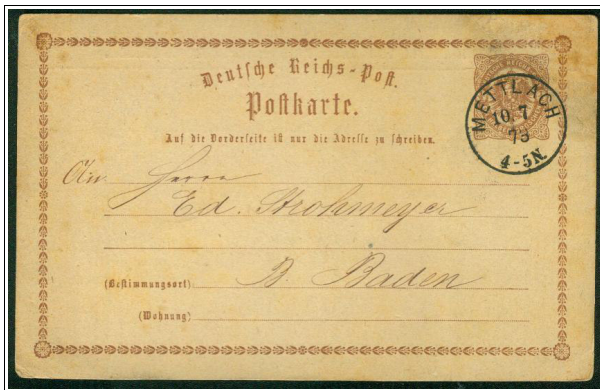 Deutsche Reichs-Post.
Postkarte.
Auf die Vorderseite ist nur die Adresse zu schreiben.
METTLACH
10 7
73
4-5N.
An Herrn
Ed. Strohmeyer
(Bestimmungsort): B. Baden
(Wohnung)